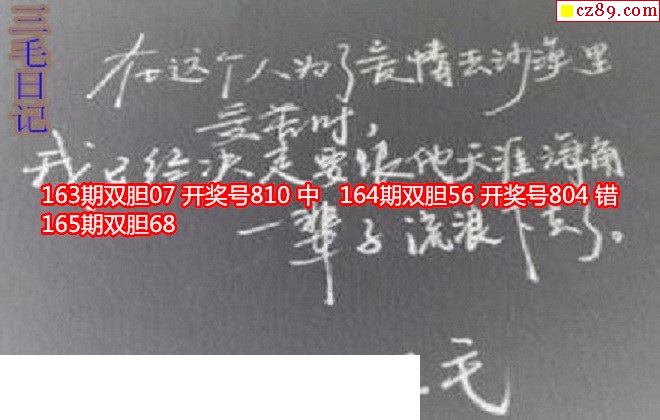 cz89.com
三毛日记
在这个人为了爱情去沙漠里
受苦时,
我已经决定要跟他天涯海角
163期双胆07 开奖号810 中 164期双胆56 开奖号804 错
165期双胆68
一辈子流浪下去了。
毛